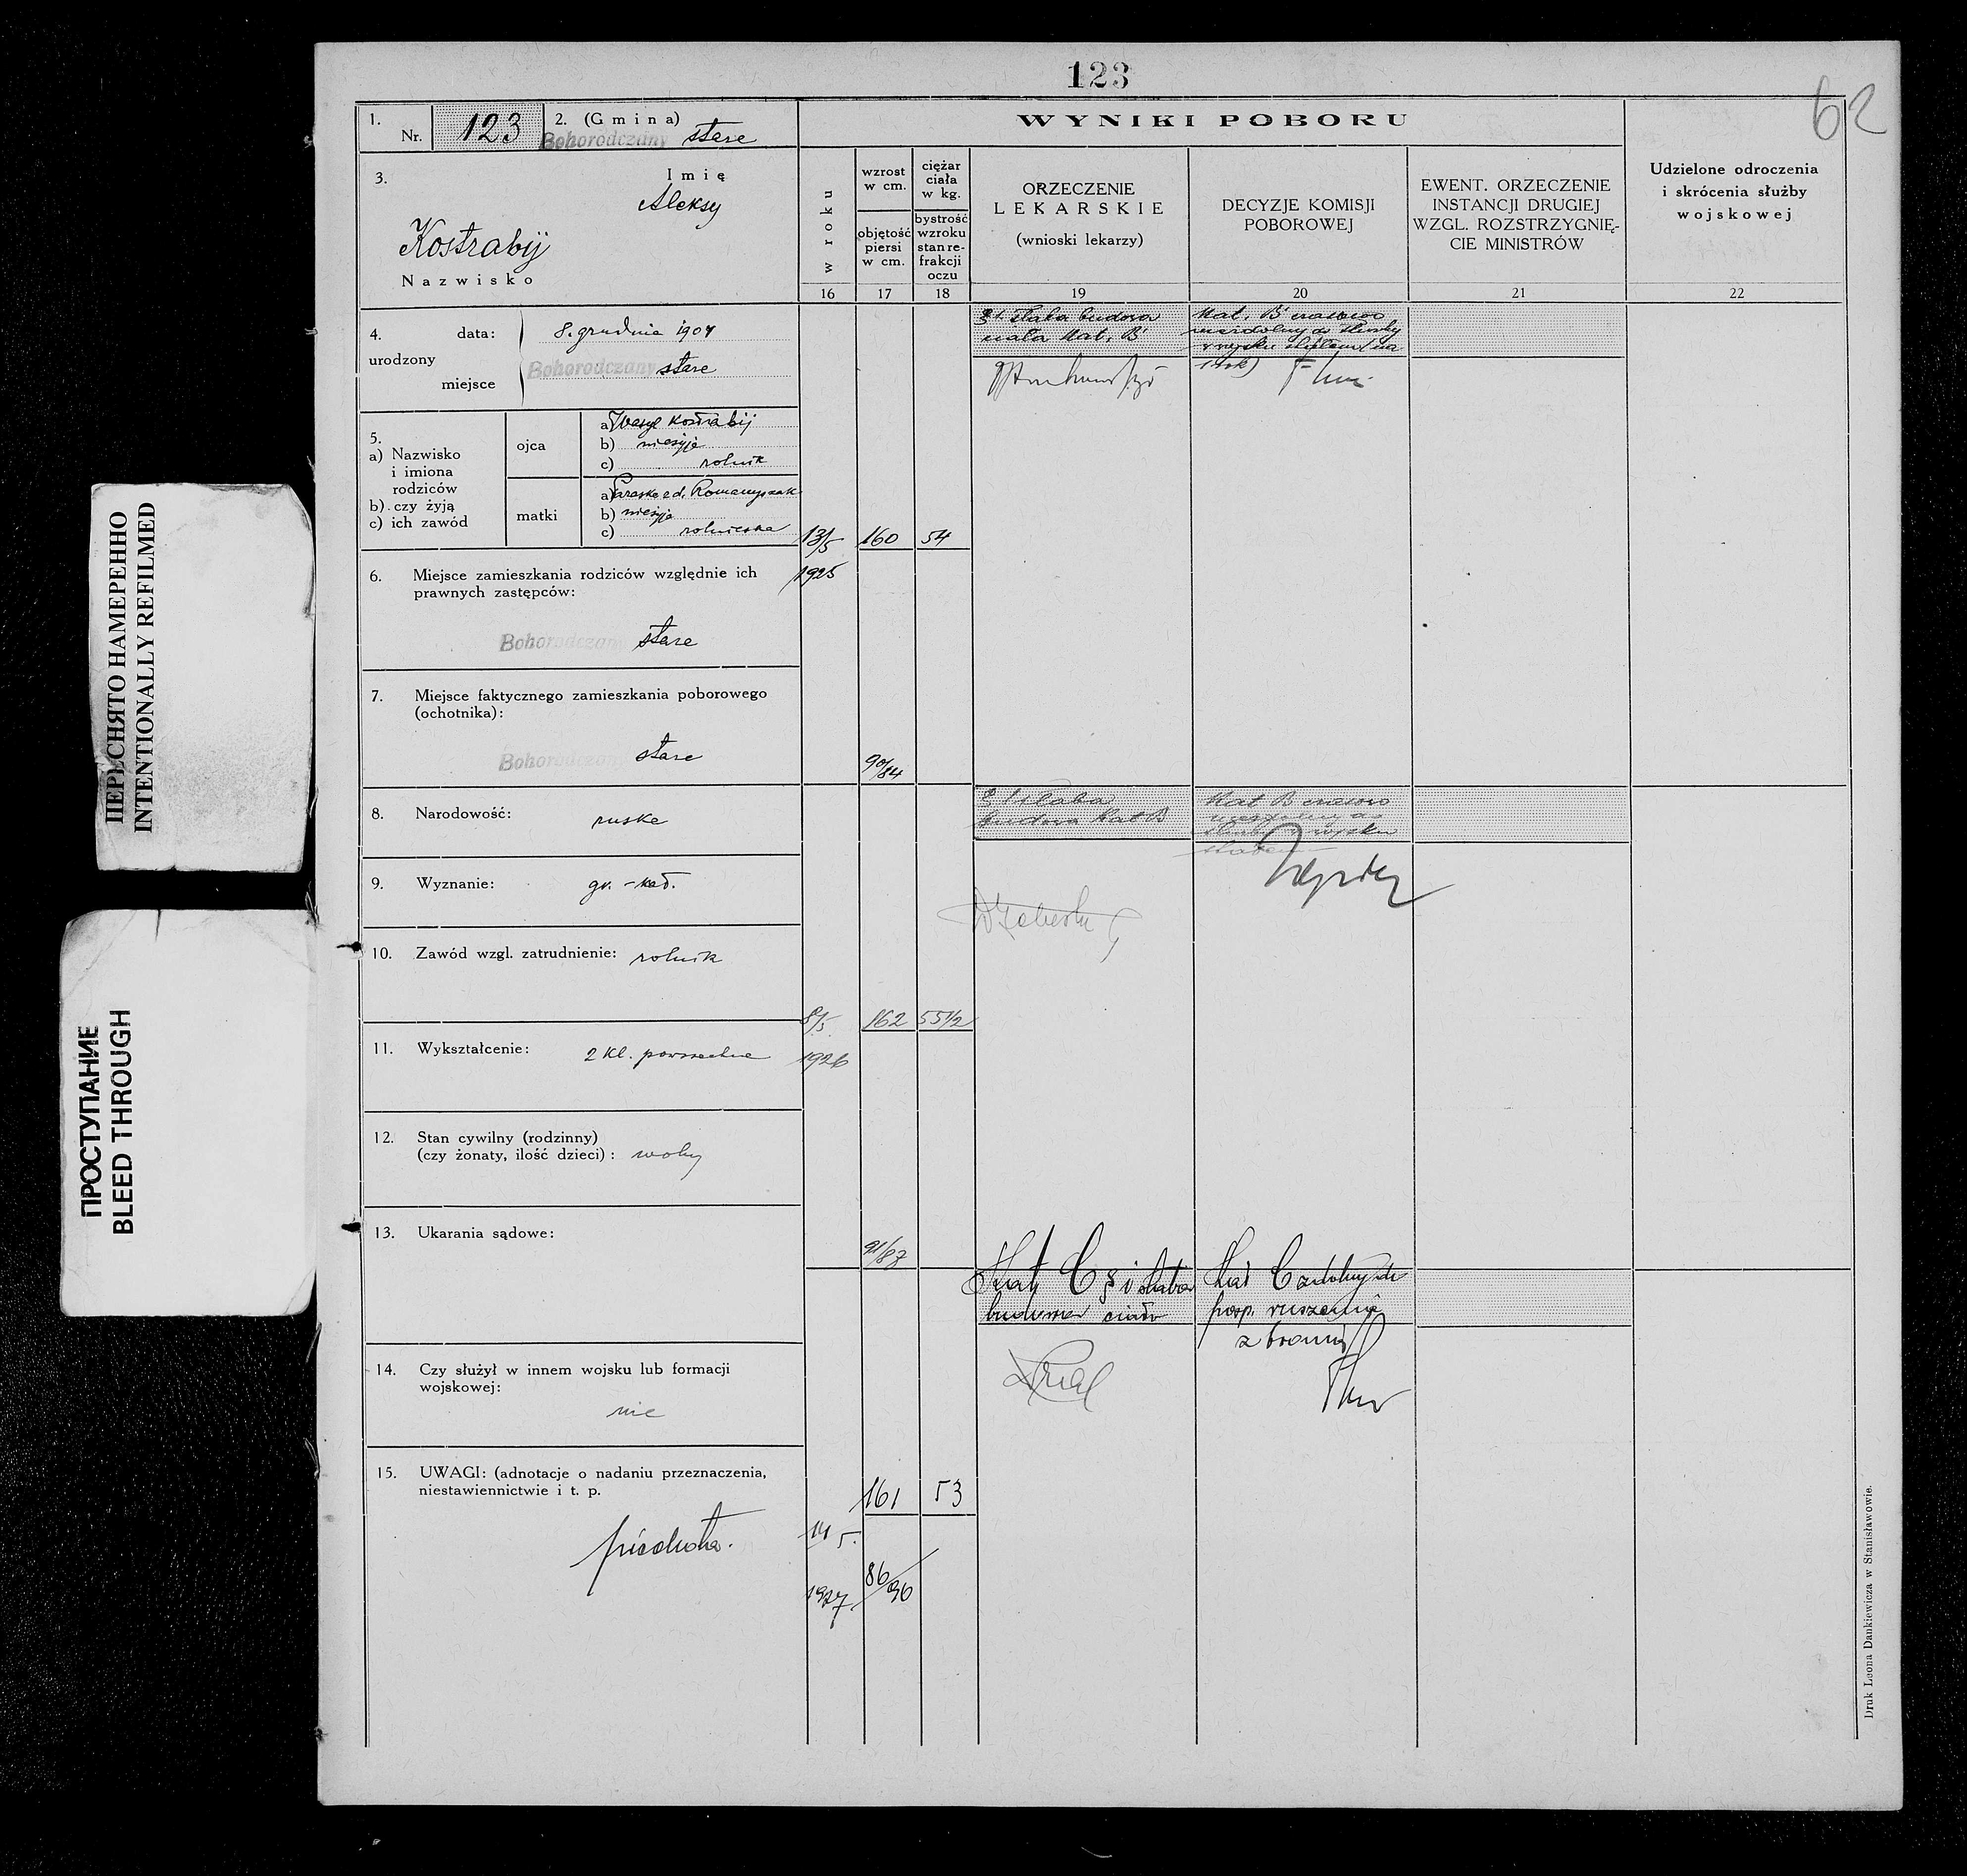 123
62
1.
Nr. 123
2. (Gmina)
Bohorodczany stare
3.
Imię
Aleksy
Kostrabij
Nazwisko
WYNIKI POBORU
w roku
wzrost
w cm.
objętość
piersi
w cm.
ciężar
ciała
w kg.
bystrość
wzroku
stan re-
frakcji
oczu
ORZECZENIE
LEKARSKIE
(wnioski lekarzy)
DECYZJE KOMISJI
POBOROWEJ
EWENT. ORZECZENIE
INSTANCJI DRUGIEJ
WZGL. ROZSTRZYGNIĘ-
CIE MINISTRÓW
Udzielone odroczenia
i skrócenia służby
wojskowej
16 17 18 19 20 21 22
4.
urodzony
data: 8. grudnia 1904
miejsce Bohorodczany stare
5.
a) Nazwisko
i imiona
rodziców
b) czy żyją
c) ich zawód
ojca
a) Wasyl Kostrabij
b) nieżyje
c) rolnik
matki
a) Paraska z d. Romanyszak
b) nieżyje
c) rolniczka
6. Miejsce zamieszkania rodziców względnie ich
prawnych zastępców:
Bohorodczany stare
7. Miejsce faktycznego zamieszkania poborowego
(ochotnika):
Bohorodczany stare
8. Narodowość: ruska
9. Wyznanie: gr. - kat.
10. Zawód wzgl. zatrudnienie: rolnik
11. Wykształcenie: 2 kl. powszechna
12. Stan cywilny (rodzinny)
(czy żonaty, ilość dzieci): wolny
13. Ukarania sądowe:
14. Czy służył w innem wojsku lub formacji
wojskowej:
nie
15. UWAGI: (adnotacje o nadaniu przeznaczenia,
niestawiennictwie i t. p.
piechota.
13/5
1925
160
54
90/84
§ 1 słaba budowa
ciała Kat. B
Kat. B czasowo
niezdolny do służby
w wojsku stałem (na
1 rok)
8/5
1926
162
55 1/2
91/87
§ 1 słaba
budowa Kat B
Kat B czasowo
niezdolny do
służby w wojsku
stałem
14 5.
1927
161
53
86/96
Kat C § 1 słaba
budowa ciała
Kat C zdolny do
posp. ruszenia
z bronią
Druk Leona Dankiewicza w Stanisławowie.
ПЕРЕСНЯТО НАМЕРЕННО
INTENTIONALLY REFILMED
ПРОСТУПАНИЕ
BLEED THROUGH